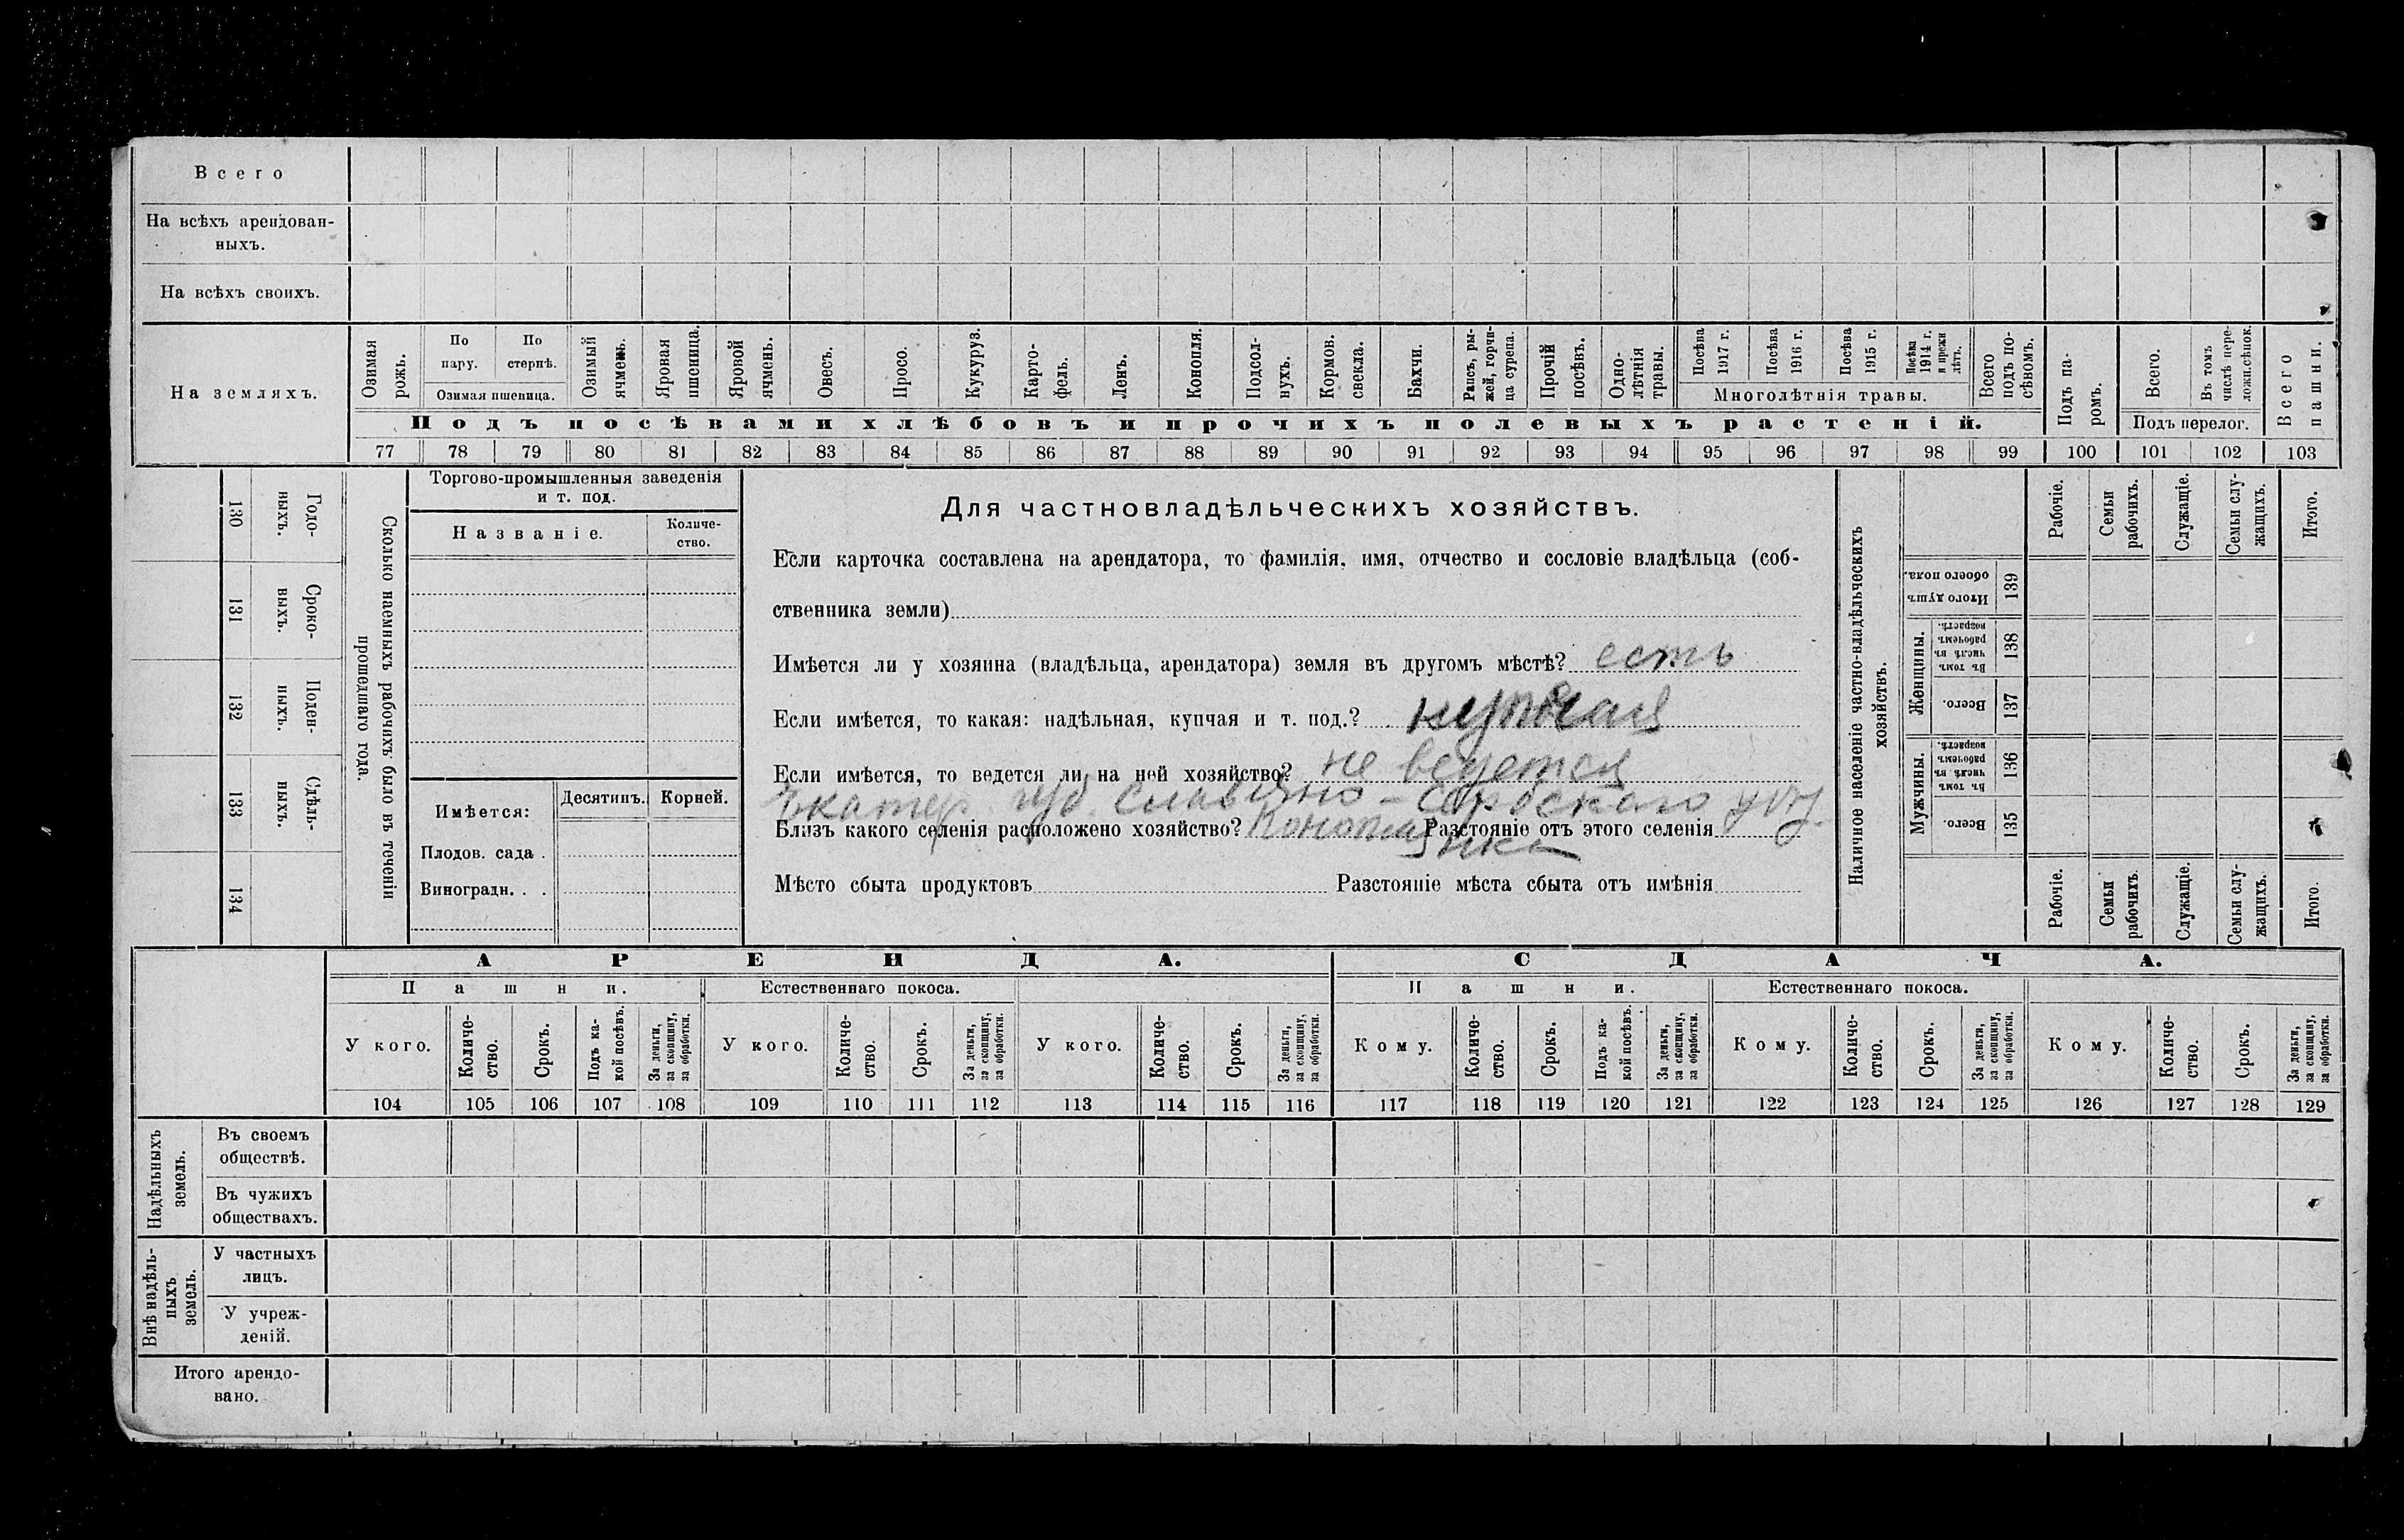 Всего
На всѣхъ арендован-
ныхъ.
На всѣхъ своихъ.
На земляхъ.
Озимая рожь.
По пару.
По стернѣ.
Озимая пшеница.
Озимый ячмень.
Яровая пшеница.
Яровой ячмень.
Овесъ.
Просо.
Кукуруз.
Карто-
фель.
Ленъ.
Конопля.
Подсол-
нухъ.
Кормов.
свекла.
Бахчи.
Рапсъ, ры-
жей, горчи-
ца сурепа.
Прочій
посѣвъ.
Одно-
лѣтнія
травы.
Посѣва
1917 г.
Посѣва
1916 г.
Посѣва
1915 г.
Посѣва
1914 г.
и прежн
лѣтъ.
Многолѣтнія травы.
Всего
подъ по-
сѣвомъ.
Подъ па-
ромъ.
Всего.
Въ томъ
числѣ пере-
ложн.сѣнок.
Подъ перелог.
Всего
пашни.
Подъ посѣвами хлѣбовъ и прочихъ полевыхъ растеній.
77 78 79 80 81 82 83 84 85 86 87 88 89 90 91 92 93 94 95 96 97 98 99 100 101 102 103
130 Годо-
ныхъ.
131 Сроко-
выхъ.
132 Поден-
ныхъ.
133 Сдѣль-
ныхъ.
134
Сколько наемныхъ рабочихъ было въ теченіи
прошедшаго года.
Торгово-промышленныя заведенія
и т. под.
Названіе.
Количе-
ство.
Имѣется:
Десятинъ.
Корней.
Плодов. сада .
Виноградн. . .
Для частновладѣльческихъ хозяйствъ.
Если карточка составлена на арендатора, то фамилія, имя, отчество и сословіе владѣльца (соб-
ственника земли)
Имѣется ли у хозяина (владѣльца, арендатора) земля въ другомъ мѣстѣ? есть
Если имѣется, то какая: надѣльная, купчая и т. под.? купчая
Если имѣется, то ведется ли на ней хозяйство? не ведется
Екатер. губ. Славяно-Сербскаго у
Близъ какого селенія расположено хозяйство? Конопля Разстояніе отъ этого селенія
нка
Мѣсто сбыта продуктовъ Разстояніе мѣста сбыта отъ имѣнія
Наличное населеніе частно-владѣльческихъ
хозяйствъ.
Рабочіе.
Семьи
рабочихъ.
Служащіе.
Семьи слу-
жащихъ.
Итого.
Итого душъ
обоего пола.
139
Женщины.
Въ томъ
числѣ въ
рабочемъ
возрастѣ.
138
Всего.
137
Мужчины.
Въ томъ
числѣ въ
рабочемъ
возрастѣ.
136
Всего.
135
Рабочіе.
Семьи
рабочихъ.
Служащіе.
Семьи слу-
жащихъ.
Итого.
АРЕНДА.
СДАЧА.
Пашни.
Естественнаго покоса.
Пашни.
Естественнаго покоса.
У кого.
Количе-
ство.
Срокъ.
Подъ ка-
кой посѣвъ.
За деньги,
за скопщину,
за обработки.
У кого.
Количе-
ство.
Срокъ.
За деньги,
за скопщину,
за обработки.
У кого.
Количе-
ство.
Срокъ.
За деньги,
за скопщину,
за обработки.
Кому.
Количе-
ство.
Срокъ.
Подъ ка-
кой посѣвъ.
За деньги,
за скопщину,
за обработки.
Кому.
Количе-
ство.
Срокъ.
За деньги,
за скопщину,
за обработки.
Кому.
Количе-
ство.
Срокъ.
За деньги,
за скопщину,
за обработки.
104 105 106 107 108 109 110 111 112 113 114 115 116 117 118 119 120 121 122 123 124 125 126 127 128 129
Надѣльныхъ
земель.
Въ своемъ
обществѣ.
Въ чужихъ
обществахъ.
Внѣ надѣль-
ныхъ
земель.
У частныхъ
лицъ.
У учреж-
деній.
Итого арендо-
вано.